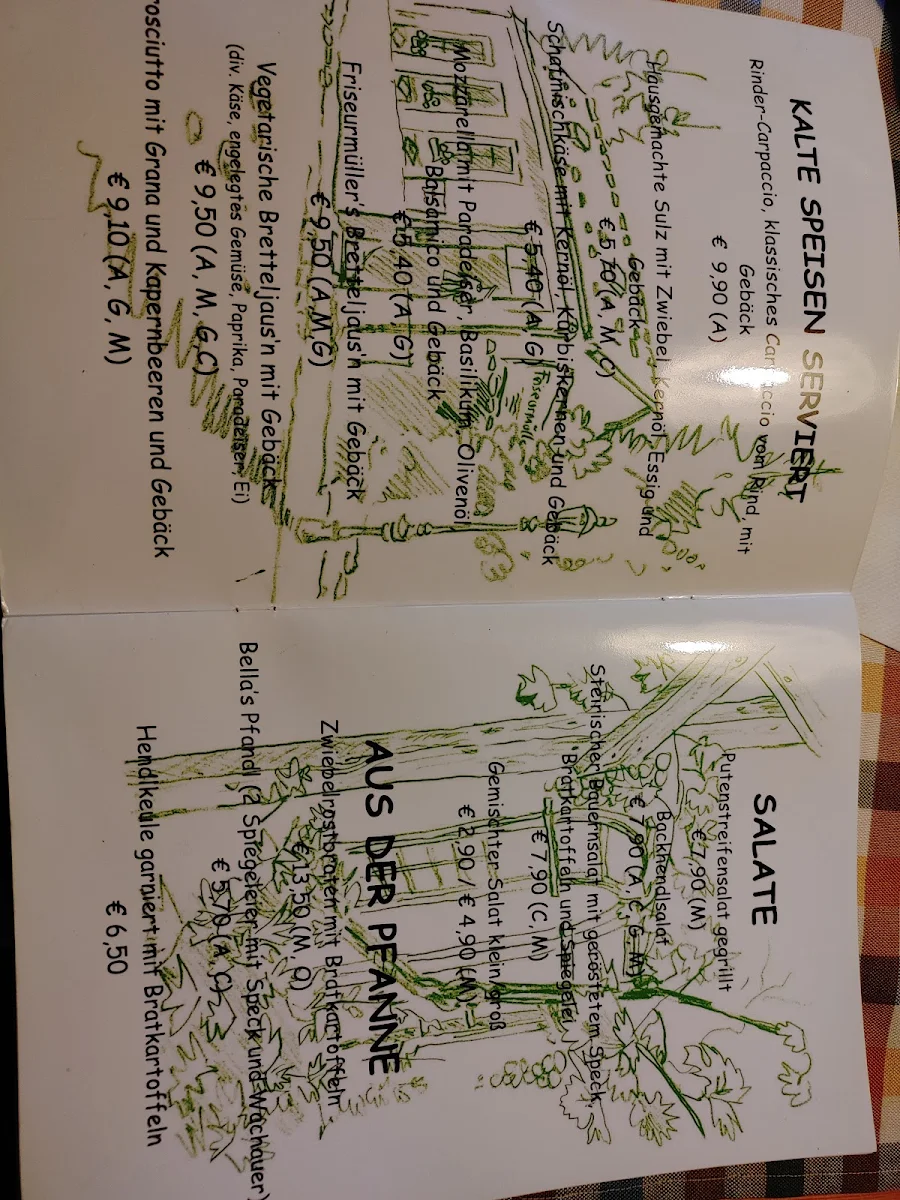 KALTE SPEISEN SERVIERT
Rinder-Carpaccio, klassisches Carpaccio vom Rind, mit
Gebäck
€ 9,90 (A)
Hausgemachte Sulz mit Zwiebel, Kernöl, Essig und
Gebäck
€ 5,70 (A, M, C)
Schafmischkäse mit Kernöl, Kürbiskernen und Gebäck
€ 5,40 (A, G)
Mozzarella mit Paradeiser, Basilikum, Olivenöl
Balsamico und Gebäck
€ 5,40 (A, G)
Friseurmüller's Bretteljaus'n mit Gebäck
€ 9,50 (A,M,G)
Vegetarische Bretteljaus'n mit Gebäck
(div. Käse, eingelegtes Gemüse, Paprika, Paradeiser, Ei)
€ 9,50 (A, M, G,C)
rosciutto mit Grana und Kapernbeeren und Gebäck
€ 9,10 (A, G, M)
SALATE
Putenstreifensalat gegrillt
€ 7,90 (M)
Backhendlsalat
€ 7,90 (A, C, G, M)
Steirischer Bauernsalat mit geröstetem Speck,
Bratkartoffeln und Spiegelei
€ 7,90 (C, M)
Gemischter Salat klein/groß
€ 2,90 / € 4,90 (M)
AUS DER PFANNE
Zwiebelrostbraten mit Bratkartoffeln
€ 13,50 (M, O)
Bella's Pfandl (2 Spiegeleier mit Speck und Wachauer)
€ 5,70 (A, C)
Hendlkeule garniert mit Bratkartoffeln
€ 6,50